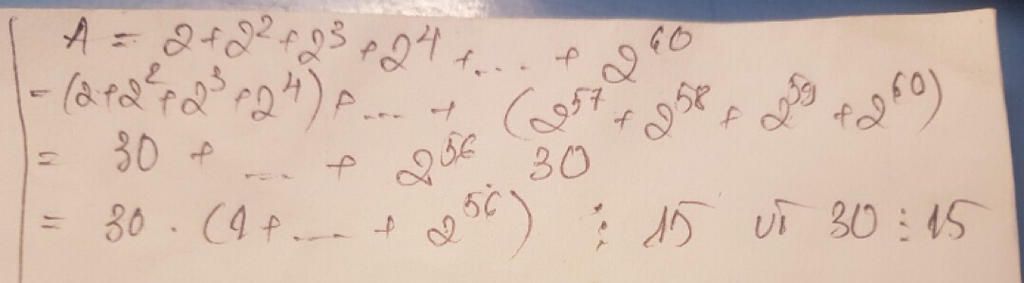 A = 2+2²+2³+2⁴+....+2⁶⁰
=(2+2²+2³+2⁴)+....+(2⁵⁷+2⁵⁸+2⁵⁹+2⁶⁰)
= 30 + .... + 2⁵⁶ 30
= 30 . (1+....+2⁵⁶) ⋮ 15 vì 30 ⋮ 15